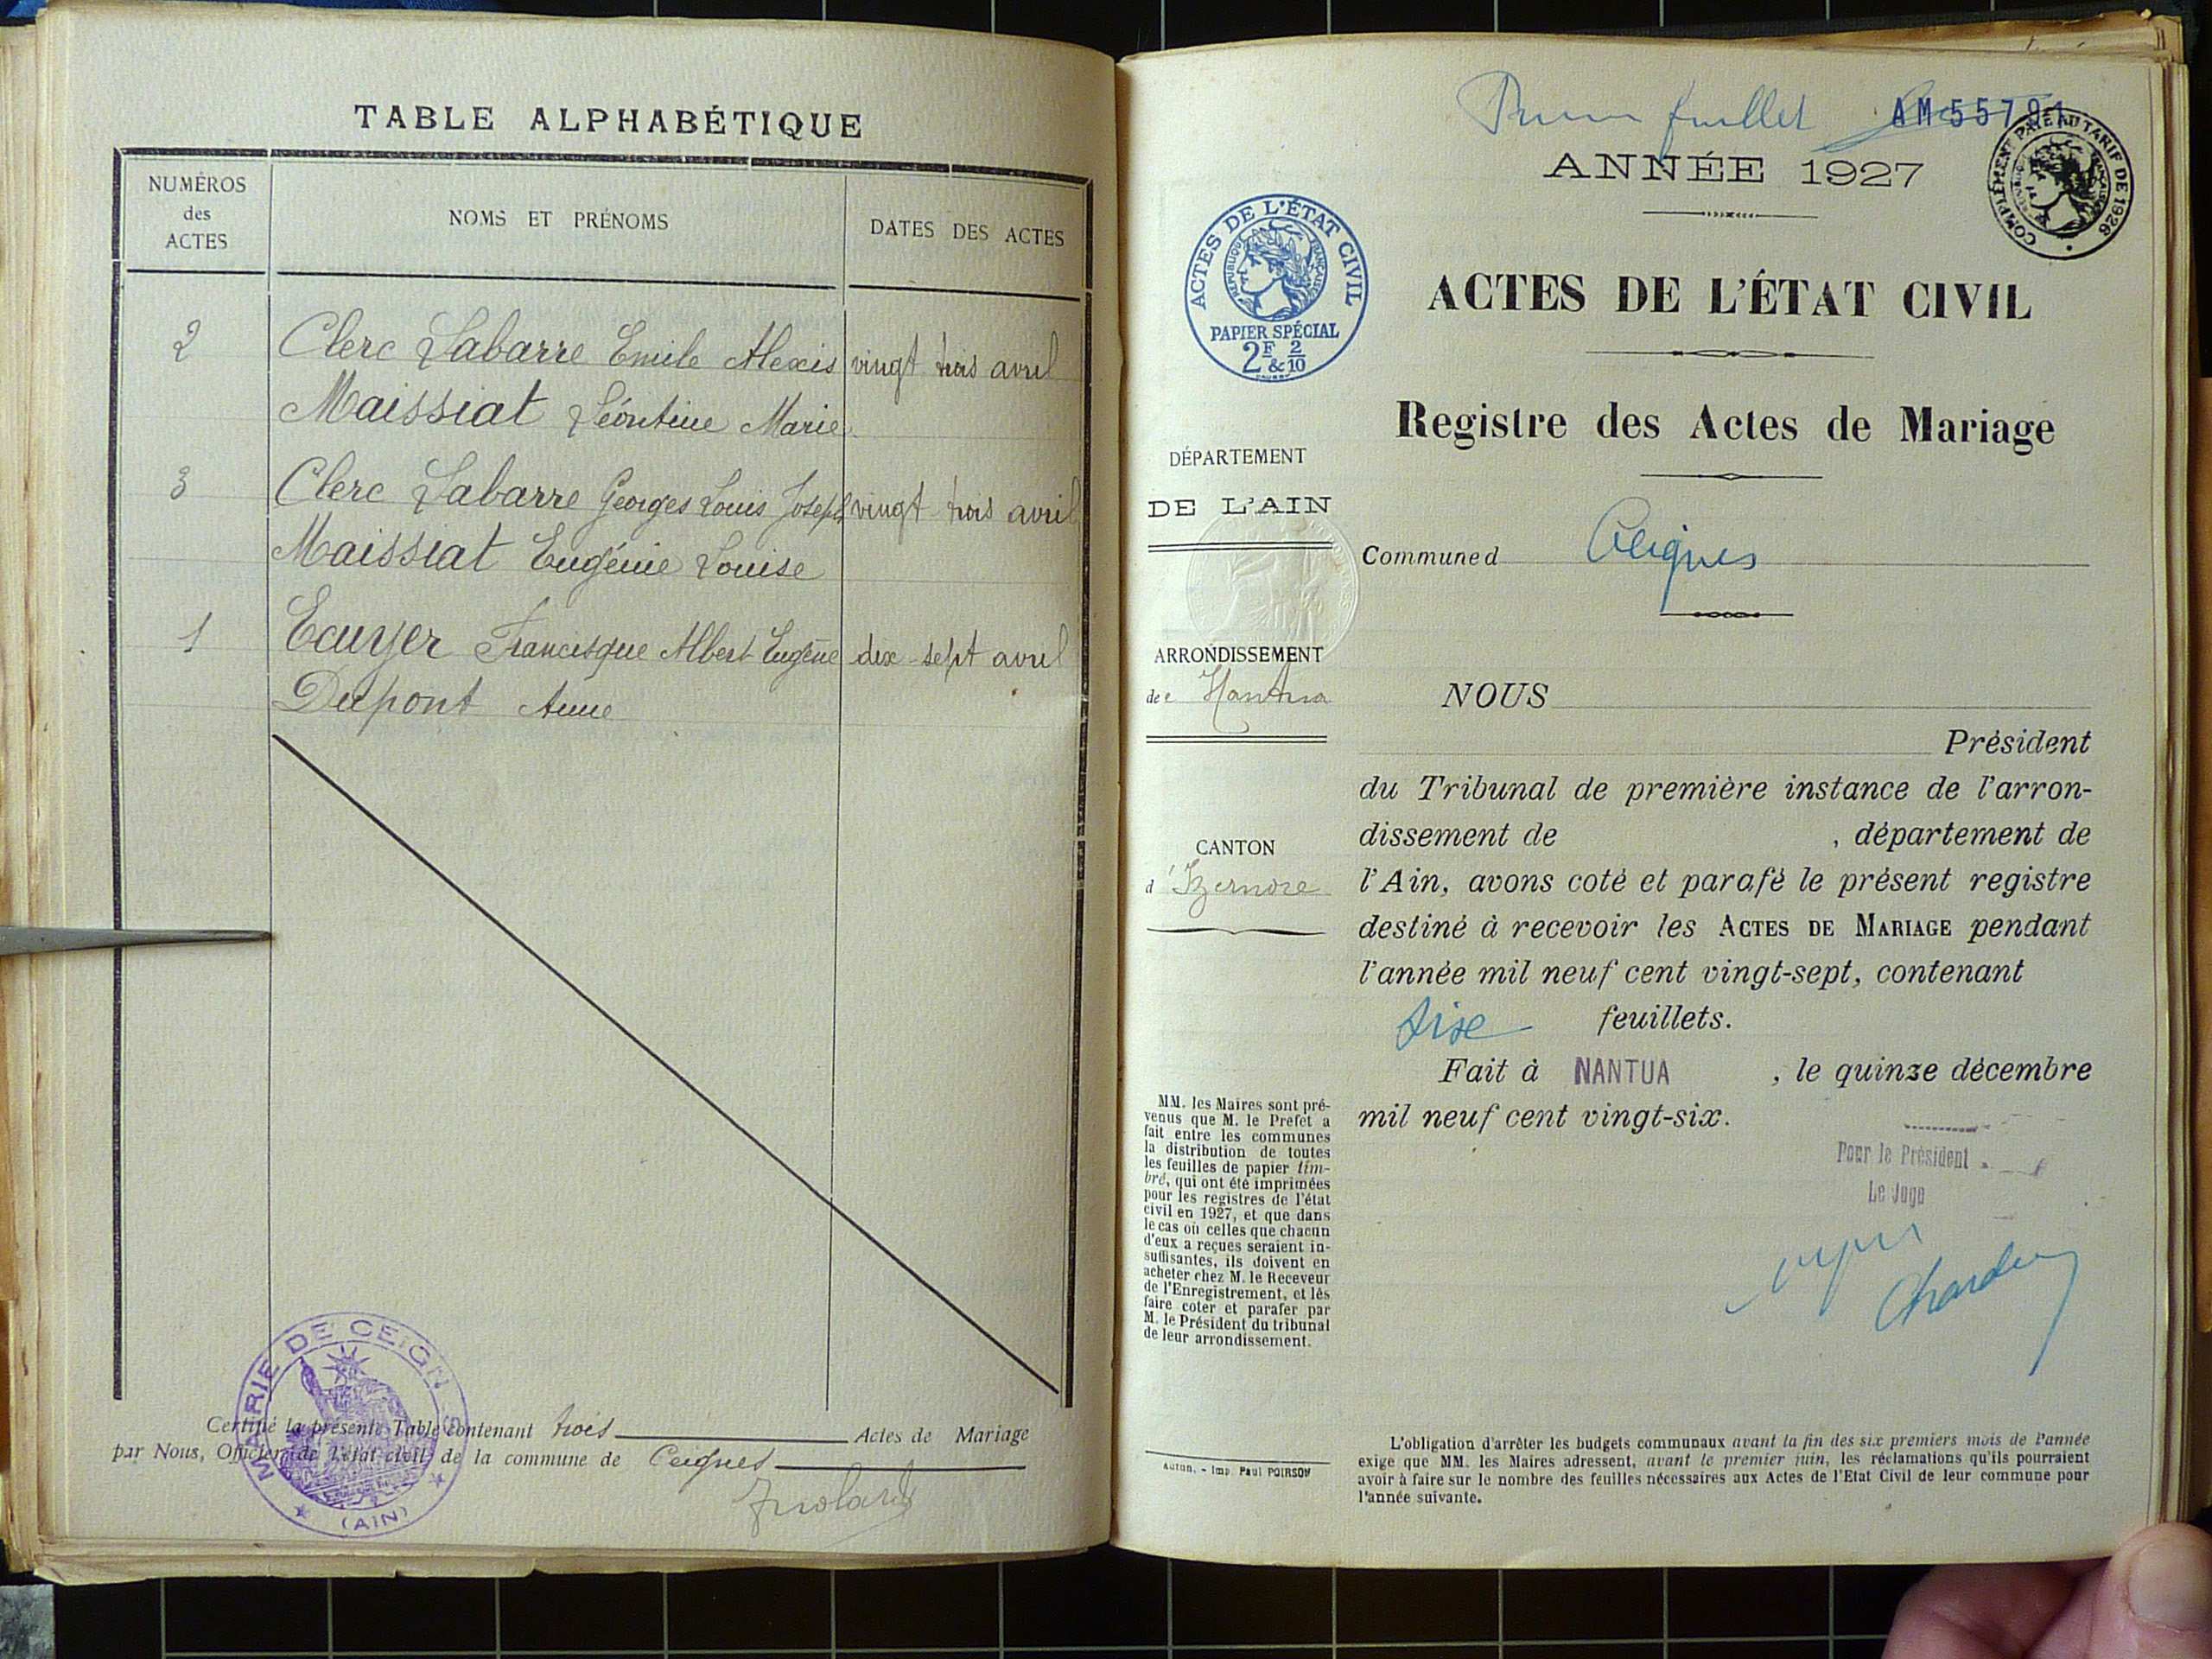 TABLE ALPHABÉTIQUE
NUMÉROS
des
ACTES
NOMS ET PRÉNOMS
DATES DES ACTES
2 Clerc Labarre Emile Alexis vingt trois avril
Maissiat Léontine Marie
3 Clerc Labarre Georges Louis Joseph vingt trois avril
Maissiat Eugénie Louise
1 Ecuyer Francisque Albert Eugène dix sept avril
Dupont Anne
MAIRIE DE CEIGNES
(AIN)
Certifié la présente Table contenant trois Actes de Mariage
par Nous, Officier de l'état civil, de la commune de Ceignes
feuillet
AM 55791
COMPLÉMENT PAYÉ AU TARIF DE 1926
ANNÉE 1927
ACTES DE L'ÉTAT CIVIL
RÉPUBLIQUE FRANÇAISE
PAPIER SPÉCIAL
2F & 2/10
ACTES DE L'ÉTAT CIVIL
Registre des Actes de Mariage
DÉPARTEMENT
DE L'AIN
Commune d Ceignes
ARRONDISSEMENT
de Nantua
CANTON
d'Izernore
NOUS
Président
du Tribunal de première instance de l'arron-
dissement de , département de
l'Ain, avons coté et parafé le présent registre
destiné à recevoir les ACTES DE MARIAGE pendant
l'année mil neuf cent vingt-sept, contenant
six feuillets.
Fait à NANTUA , le quinze décembre
mil neuf cent vingt-six.
Pour le Président
Le Juge
MM. les Maires sont pré-
venus que M. le Préfet a
fait entre les communes
la distribution de toutes
les feuilles de papier tim-
bré, qui ont été imprimées
pour les registres de l'état
civil en 1927, et que dans
le cas où celles que chacun
d'eux a reçues seraient in-
suffisantes, ils doivent en
acheter chez M. le Receveur
de l'Enregistrement, et les
faire coter et parafer par
M. le Président du tribunal
de leur arrondissement.
Autun. - Imp. Paul POIRSON
L'obligation d'arrêter les budgets communaux avant la fin des six premiers mois de l'année
exige que MM. les Maires adressent, avant le premier juin, les réclamations qu'ils pourraient
avoir à faire sur le nombre des feuilles nécessaires aux Actes de l'Etat Civil de leur commune pour
l'année suivante.